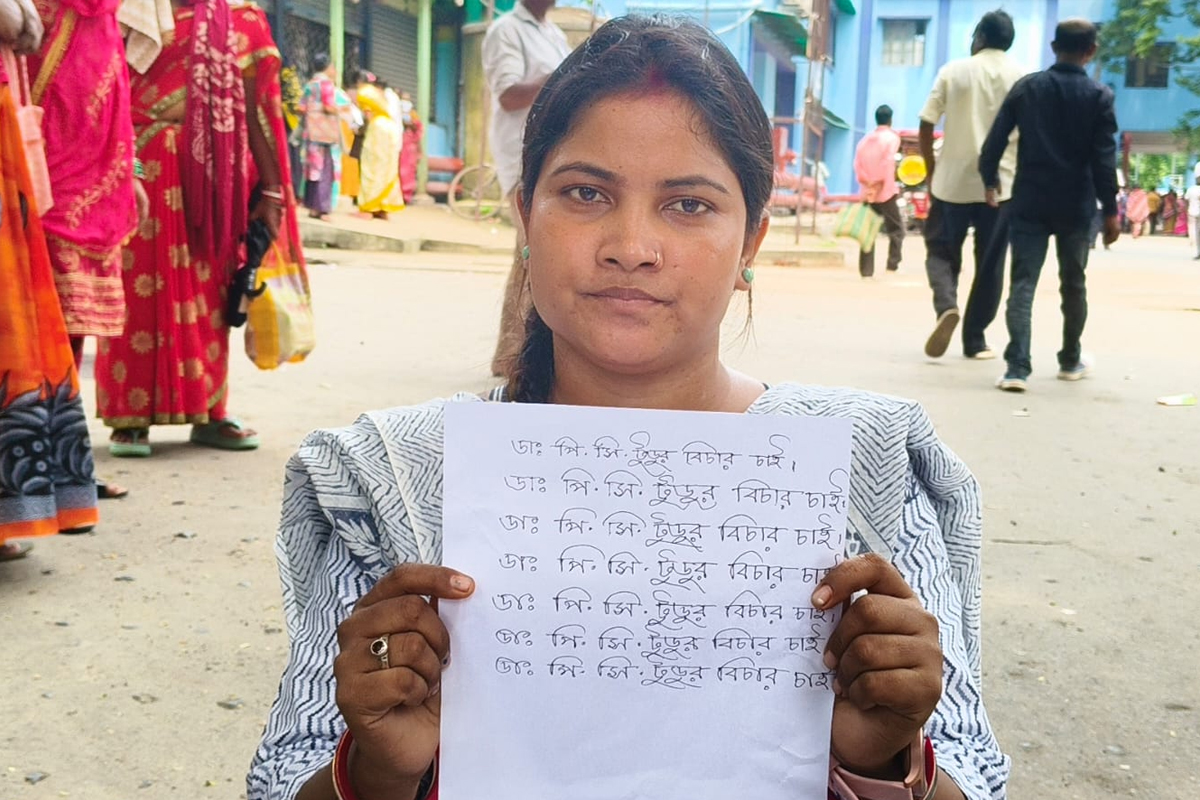 ডাঃ পি. সি. টুডুর বিচার চাই।
ডাঃ পি. সি. টুডুর বিচার চাই।
ডাঃ পি. সি. টুডুর বিচার চাই।
ডাঃ পি. সি. টুডুর বিচার চাই
ডাঃ পি. সি. টুডুর বিচার চাই।
ডাঃ পি. সি. টুডুর বিচার চাই
ডাঃ পি. সি. টুডুর বিচার চাই